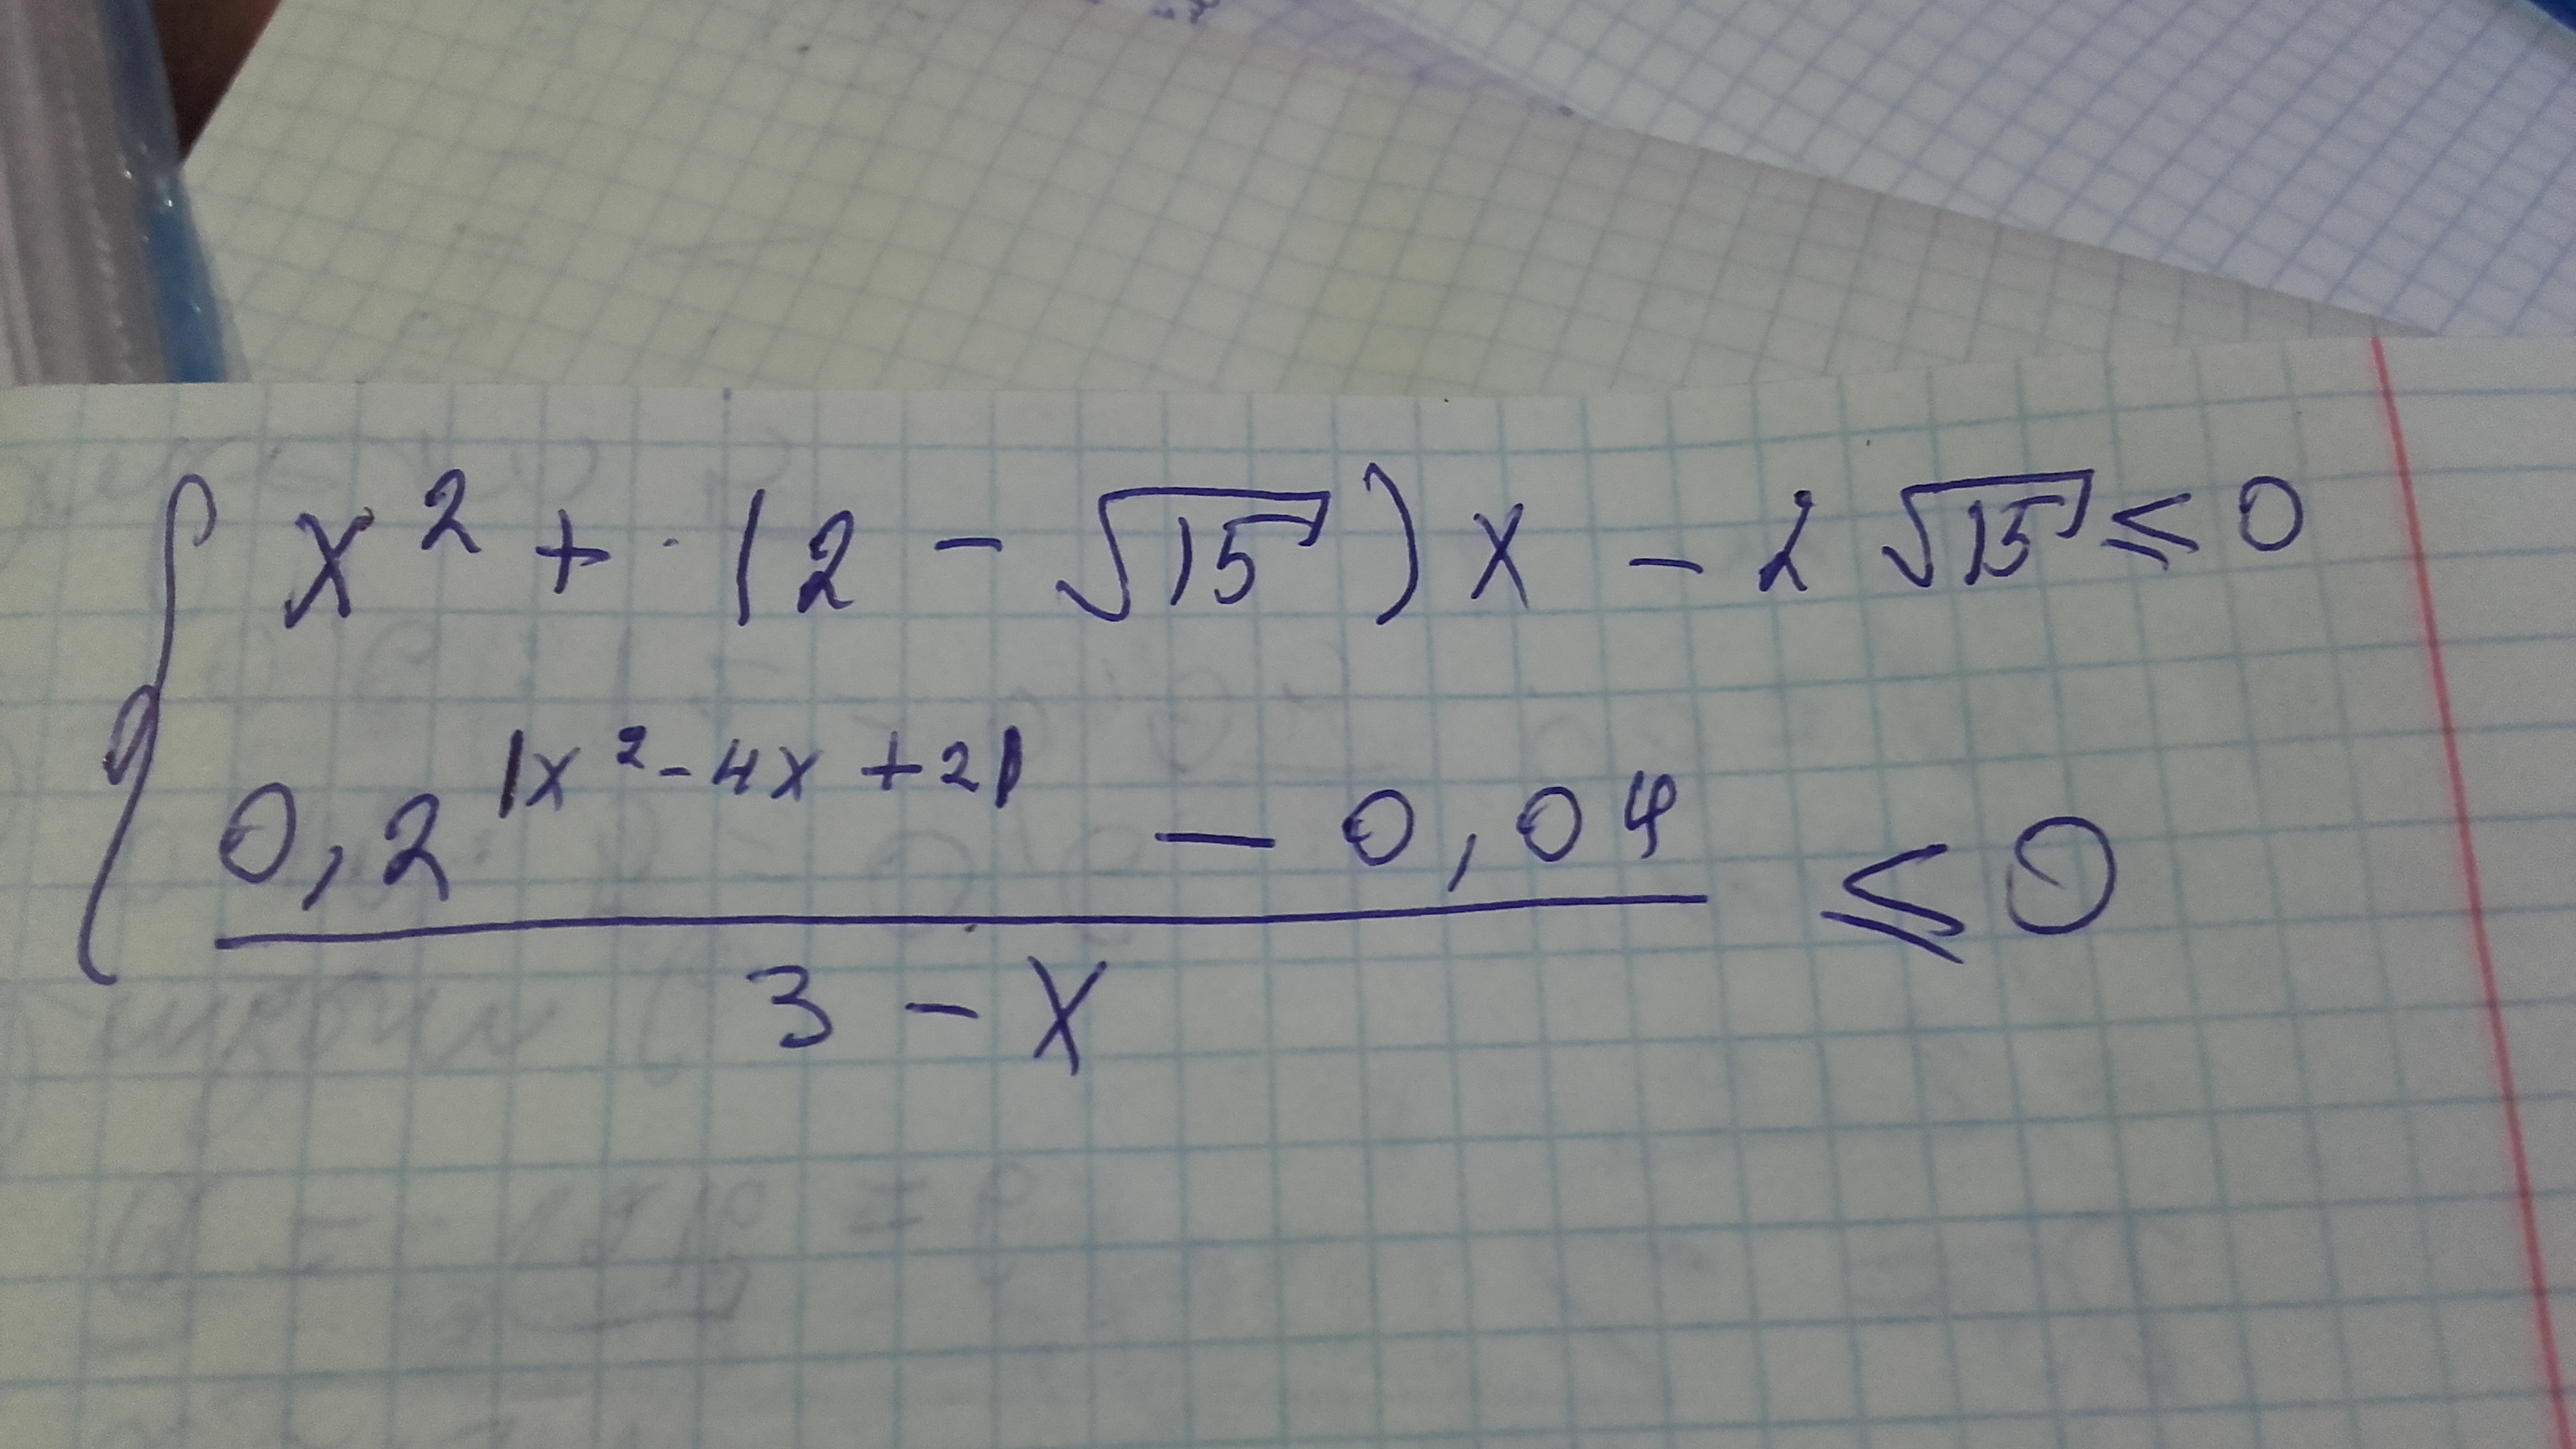 x² + (2 - √15)x - 2√15 ≤ 0
0,2^|x² - 4x + 2| - 0,04
3 - x ≤ 0